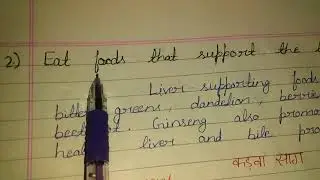 2) Eat foods that support the
Liver supporting foods
bitter greens, dandelion, berries
Ginseng also promo
liver and bile pro
कड़वा साग